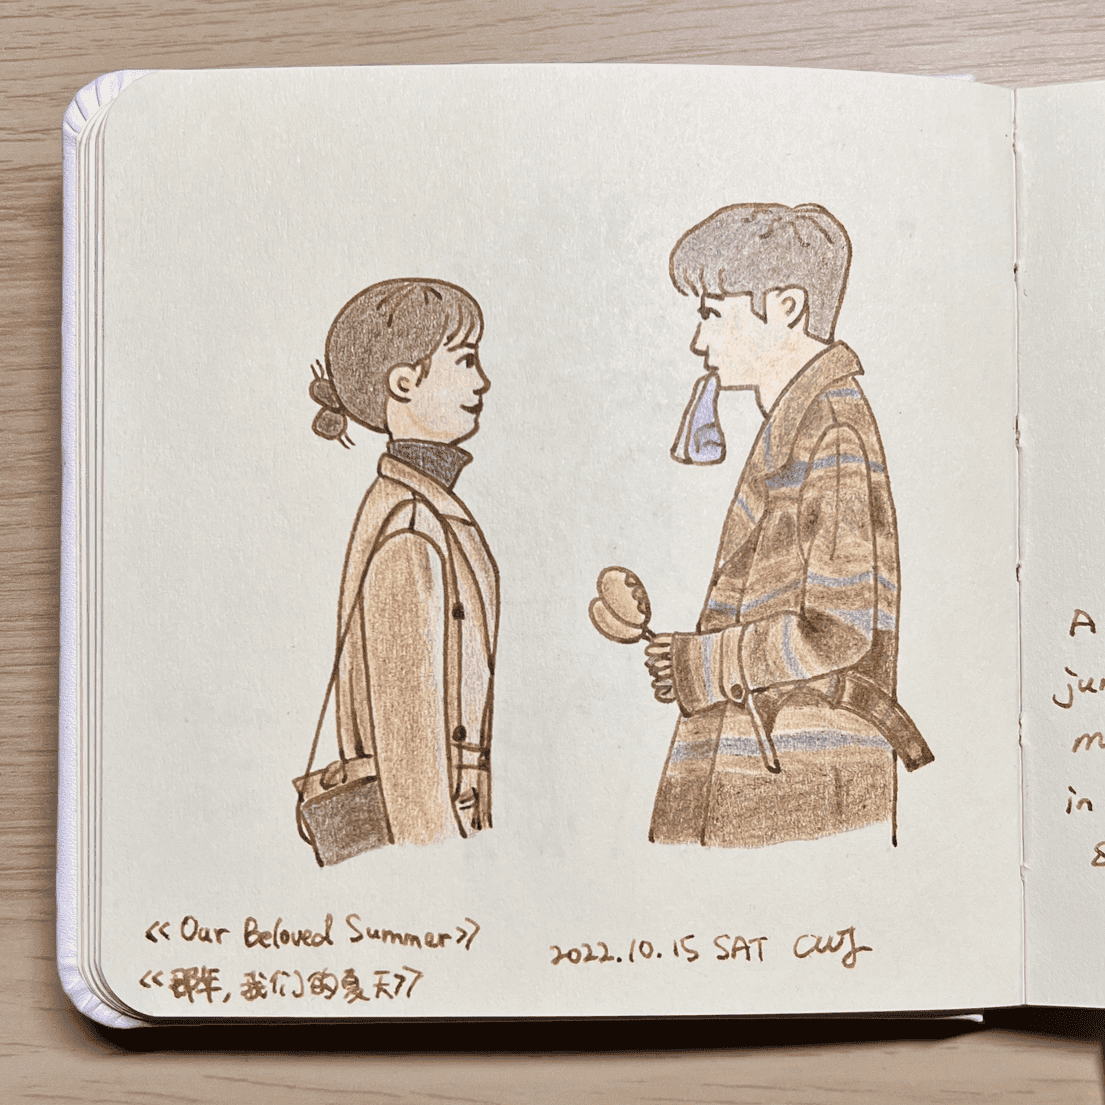 << Our Beloved Summer >>
<<那年, 我们的夏天>>
2022.10.15 SAT CWJ
A
jun
m
in
&